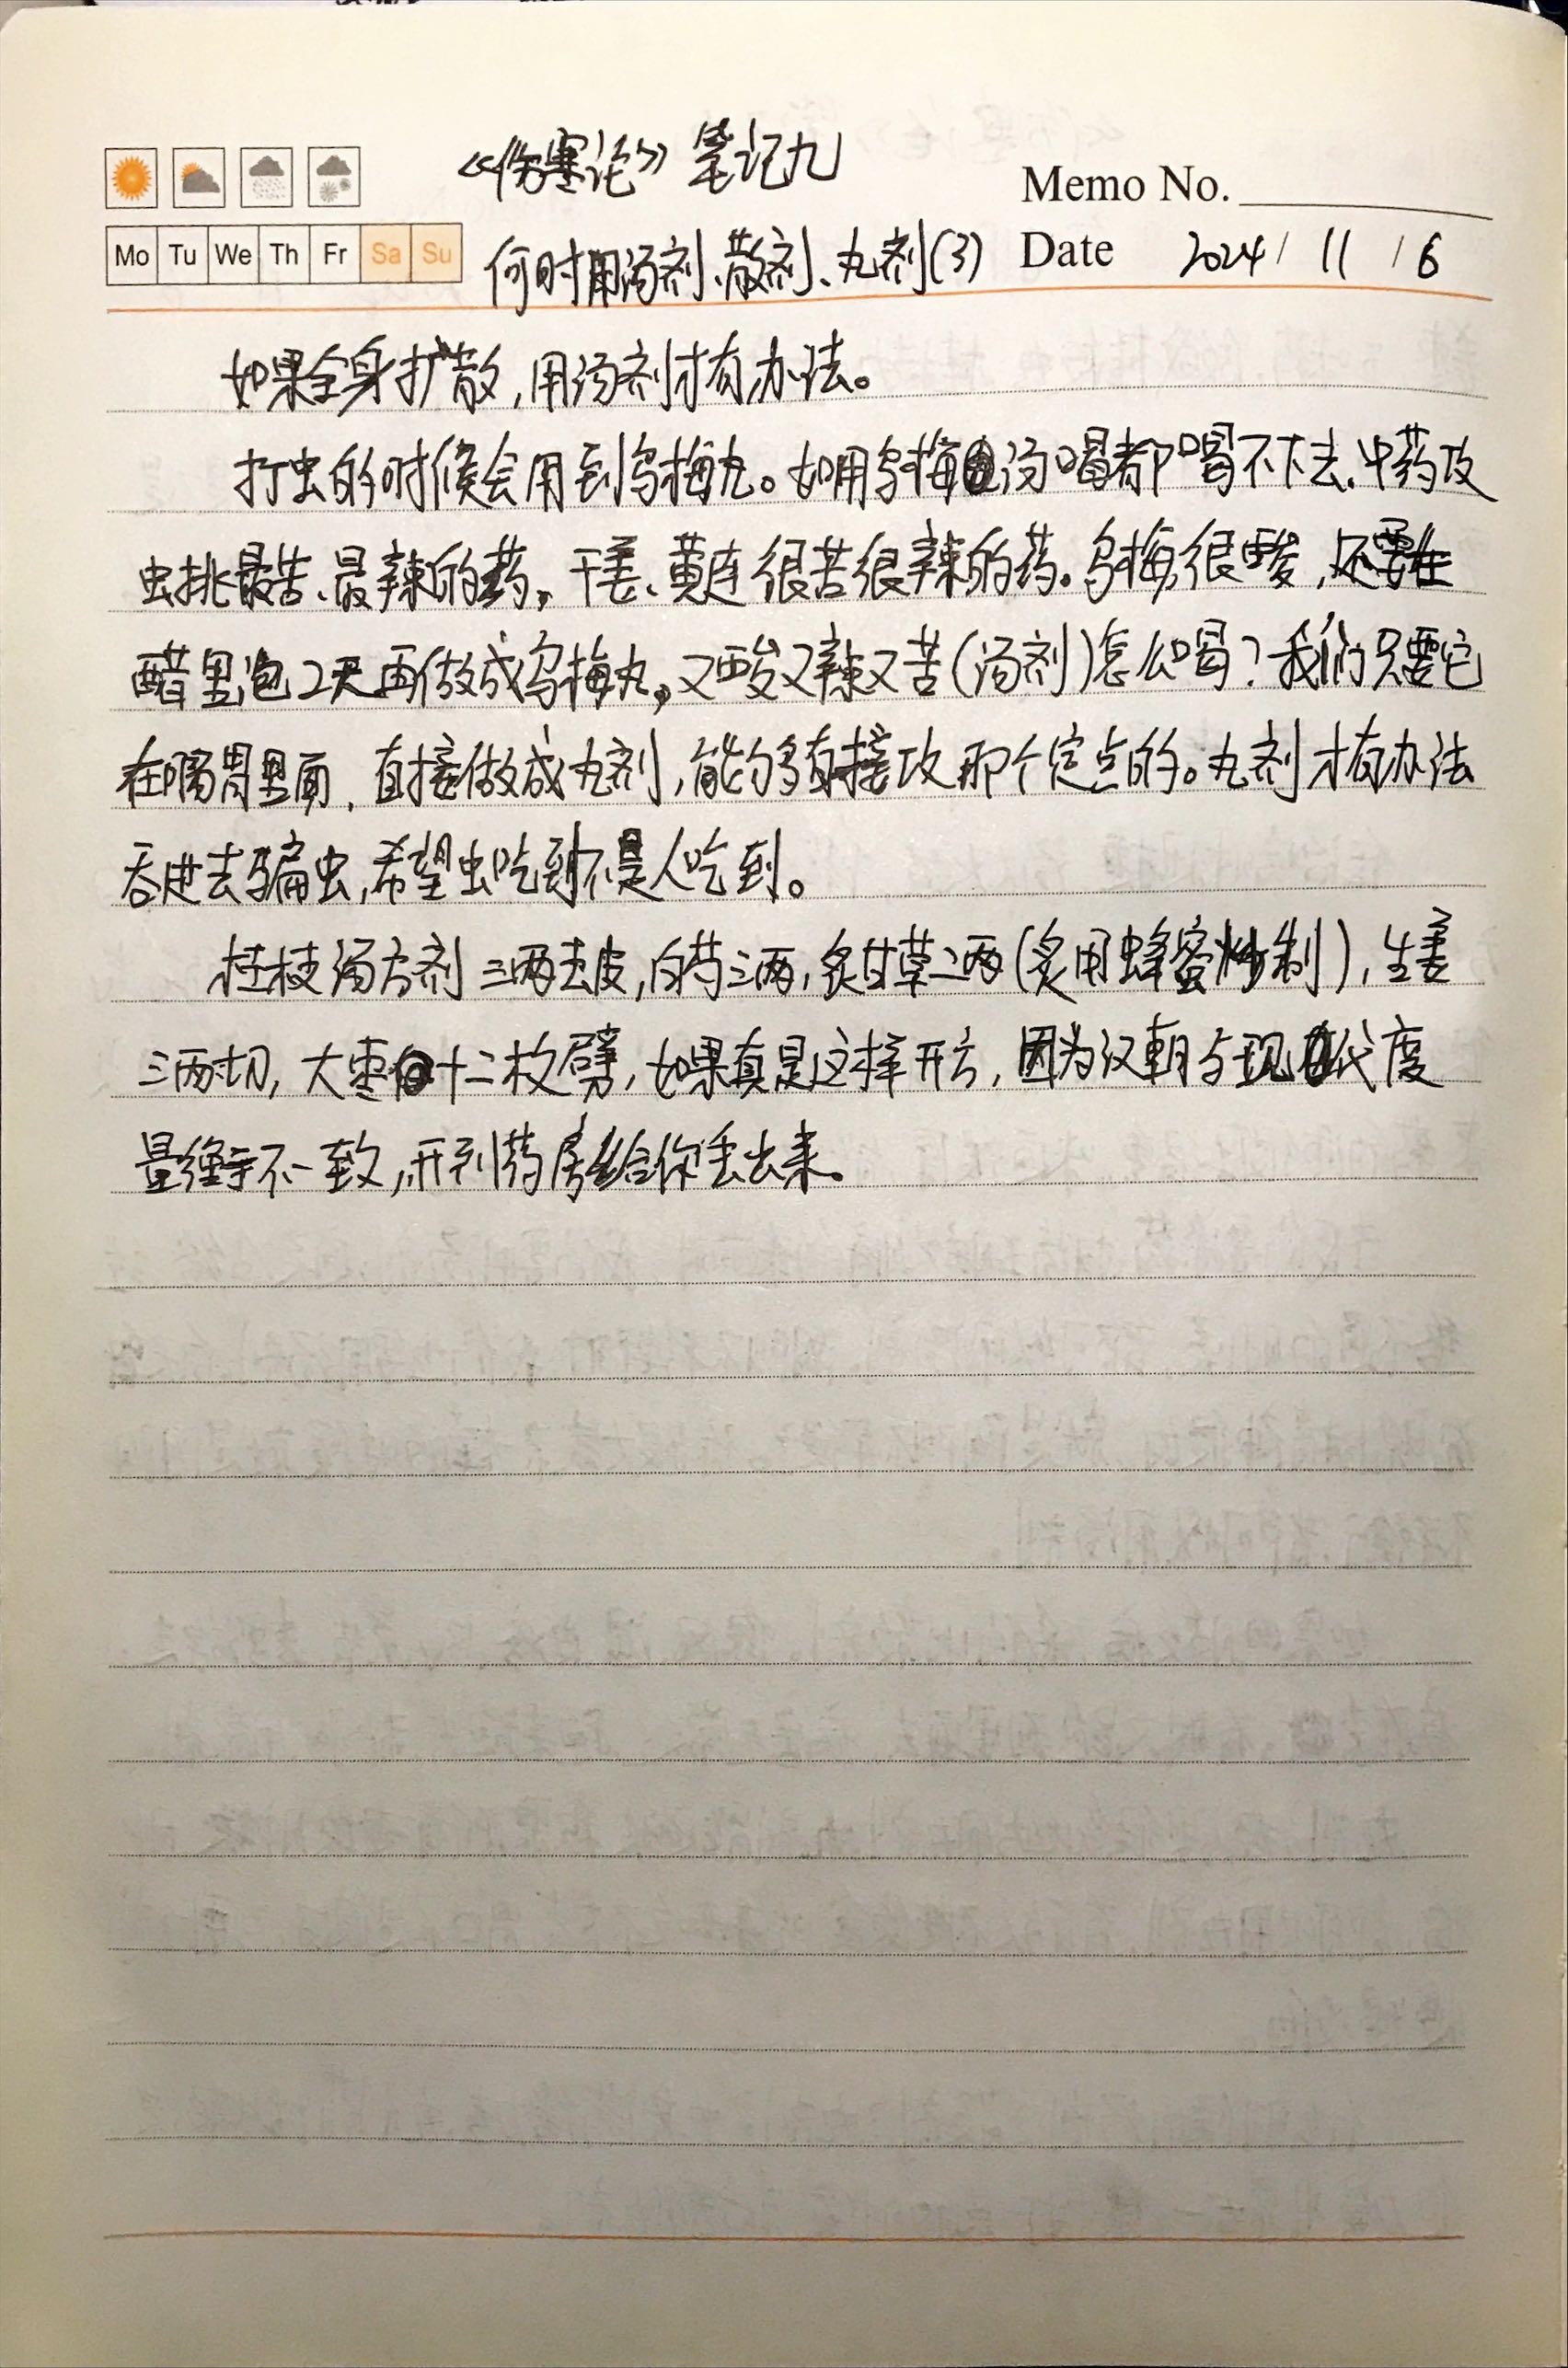 《伤寒论》笔记九
Memo No.
Mo Tu We Th Fr Sa Su
何时用汤剂、散剂、丸剂(3)
Date 2024/11/6
如果全身扩散,用汤剂才有办法。
打虫的时候会用到乌梅丸。如用乌梅汤喝都喝不下去.中药攻
虫挑最苦、最辣的药,干姜、黄连很苦很辣的药。乌梅很酸,还要在
醋里泡2天再做成乌梅丸,又酸又辣又苦(汤剂)怎么喝?我们只要它
在肠胃里面,直接做成丸剂,能够直接攻那个定点的。丸剂才有办法
吞进去骗虫,希望虫吃到不是人吃到。
桂枝汤方剂三两去皮,白芍三两,炙甘草二两(炙用蜂蜜炒制),生姜
三两切,大枣十二枚劈,如果真是这样开方,因为汉朝与现代度
量衡不一致,开到药房给你丢出来。